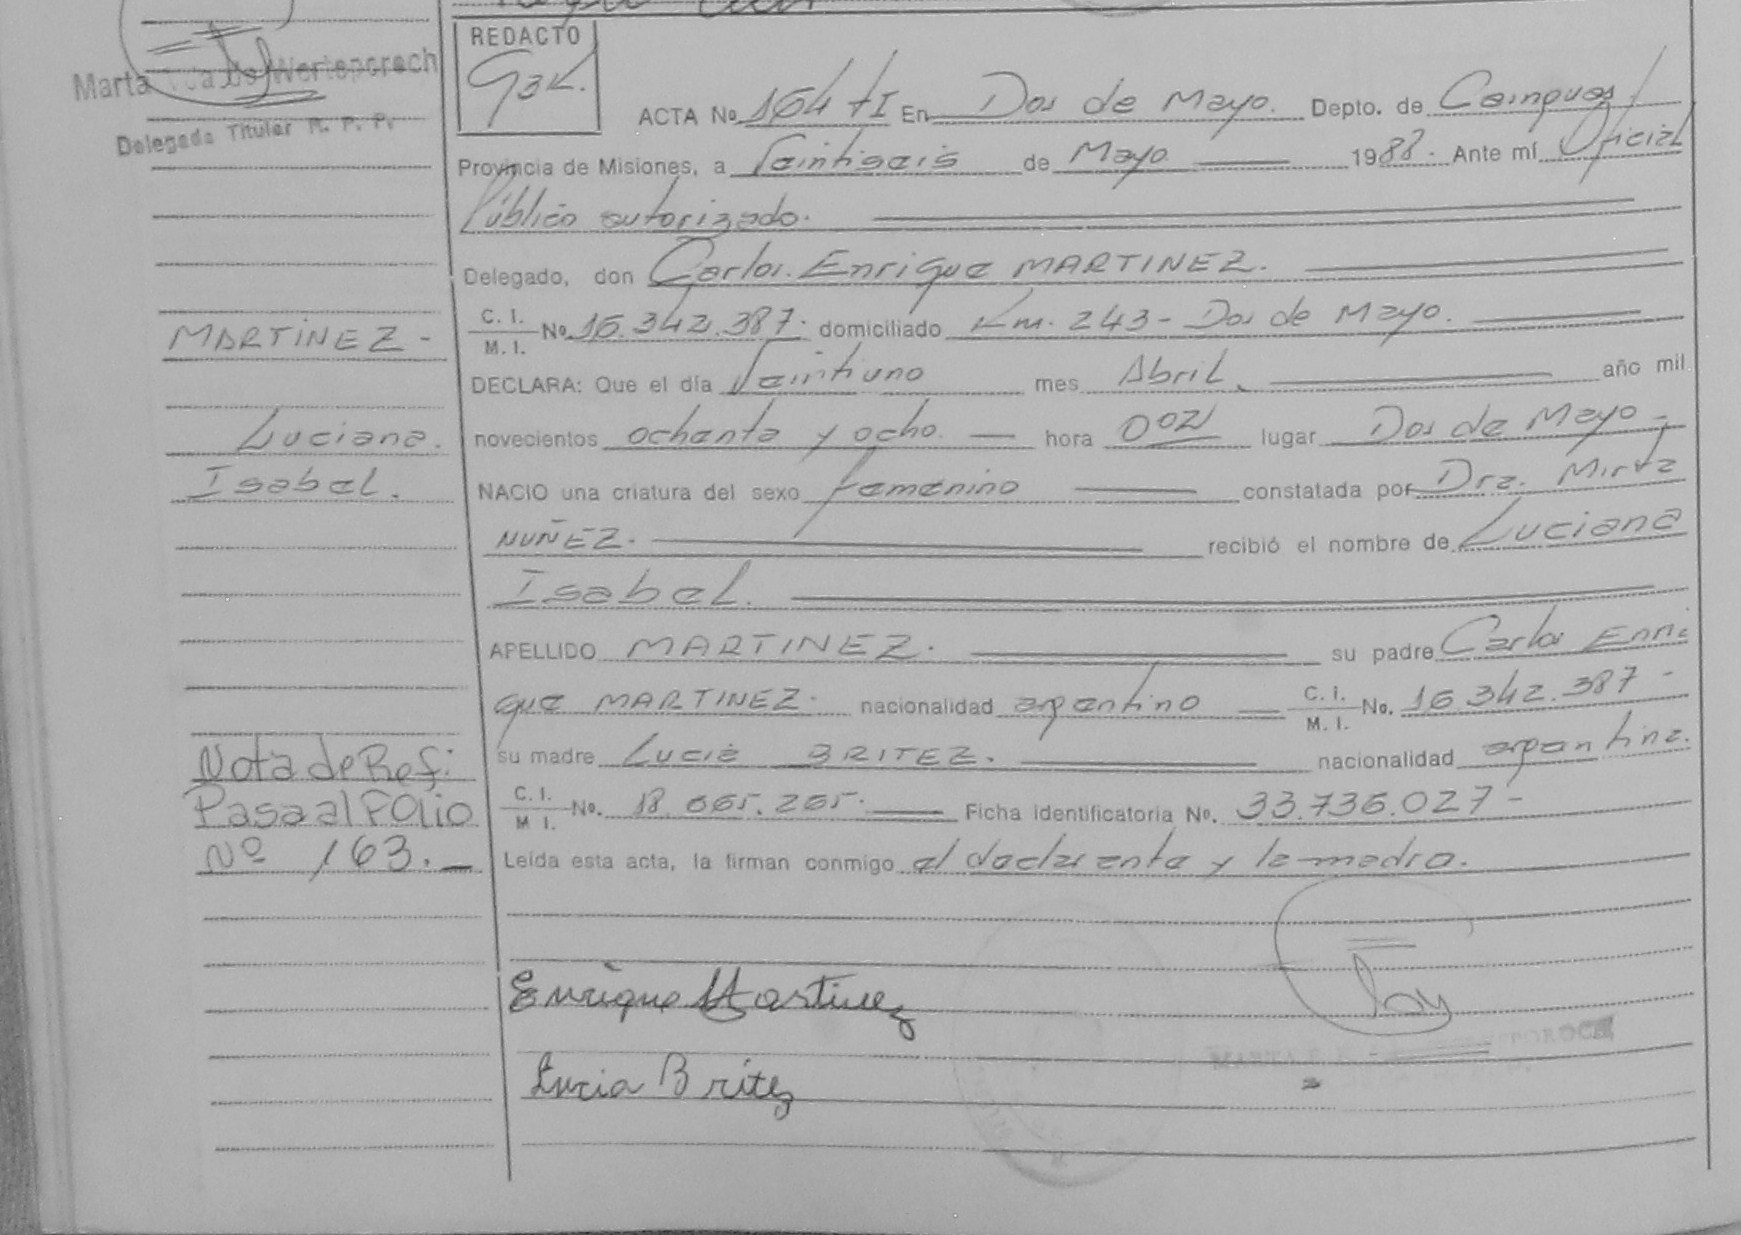 Marta Wertepcrech
Delegada Titular R. P. P.
REDACTO
ACTA No 164 tI En Dos de Mayo. Depto. de Cainguas
Provincia de Misiones, a Veintiseis de Mayo 1988. Ante mí Oficial
Público autorizado.
Delegado, don Carlos Enrique MARTINEZ.
C. I.
M. I. No. 16.342.387. domiciliado Km. 243 - Dos de Mayo.
MARTINEZ -
DECLARA: Que el día Veintiuno mes Abril. año mil
Luciana.
novecientos ochenta y ocho. hora 002 lugar Dos de Mayo -
Isabel.
NACIO una criatura del sexo femenino constatada por Dra. Mirta
NUÑEZ. recibió el nombre de Luciana
Isabel.
APELLIDO MARTINEZ. su padre Carlos Enri
que MARTINEZ. nacionalidad argentino C. I.
M. I. No. 16.342.387 -
su madre Lucia BRITEZ. nacionalidad argentina.
C. I.
M I. No. 18.065.265. Ficha Identificatoria No. 33.736.027 -
Leída esta acta, la firman conmigo el declarante y la madre.
Nota de Ref:
Pasa al Folio
Nº 163.-
Enrique Martinez
Lucia Britez